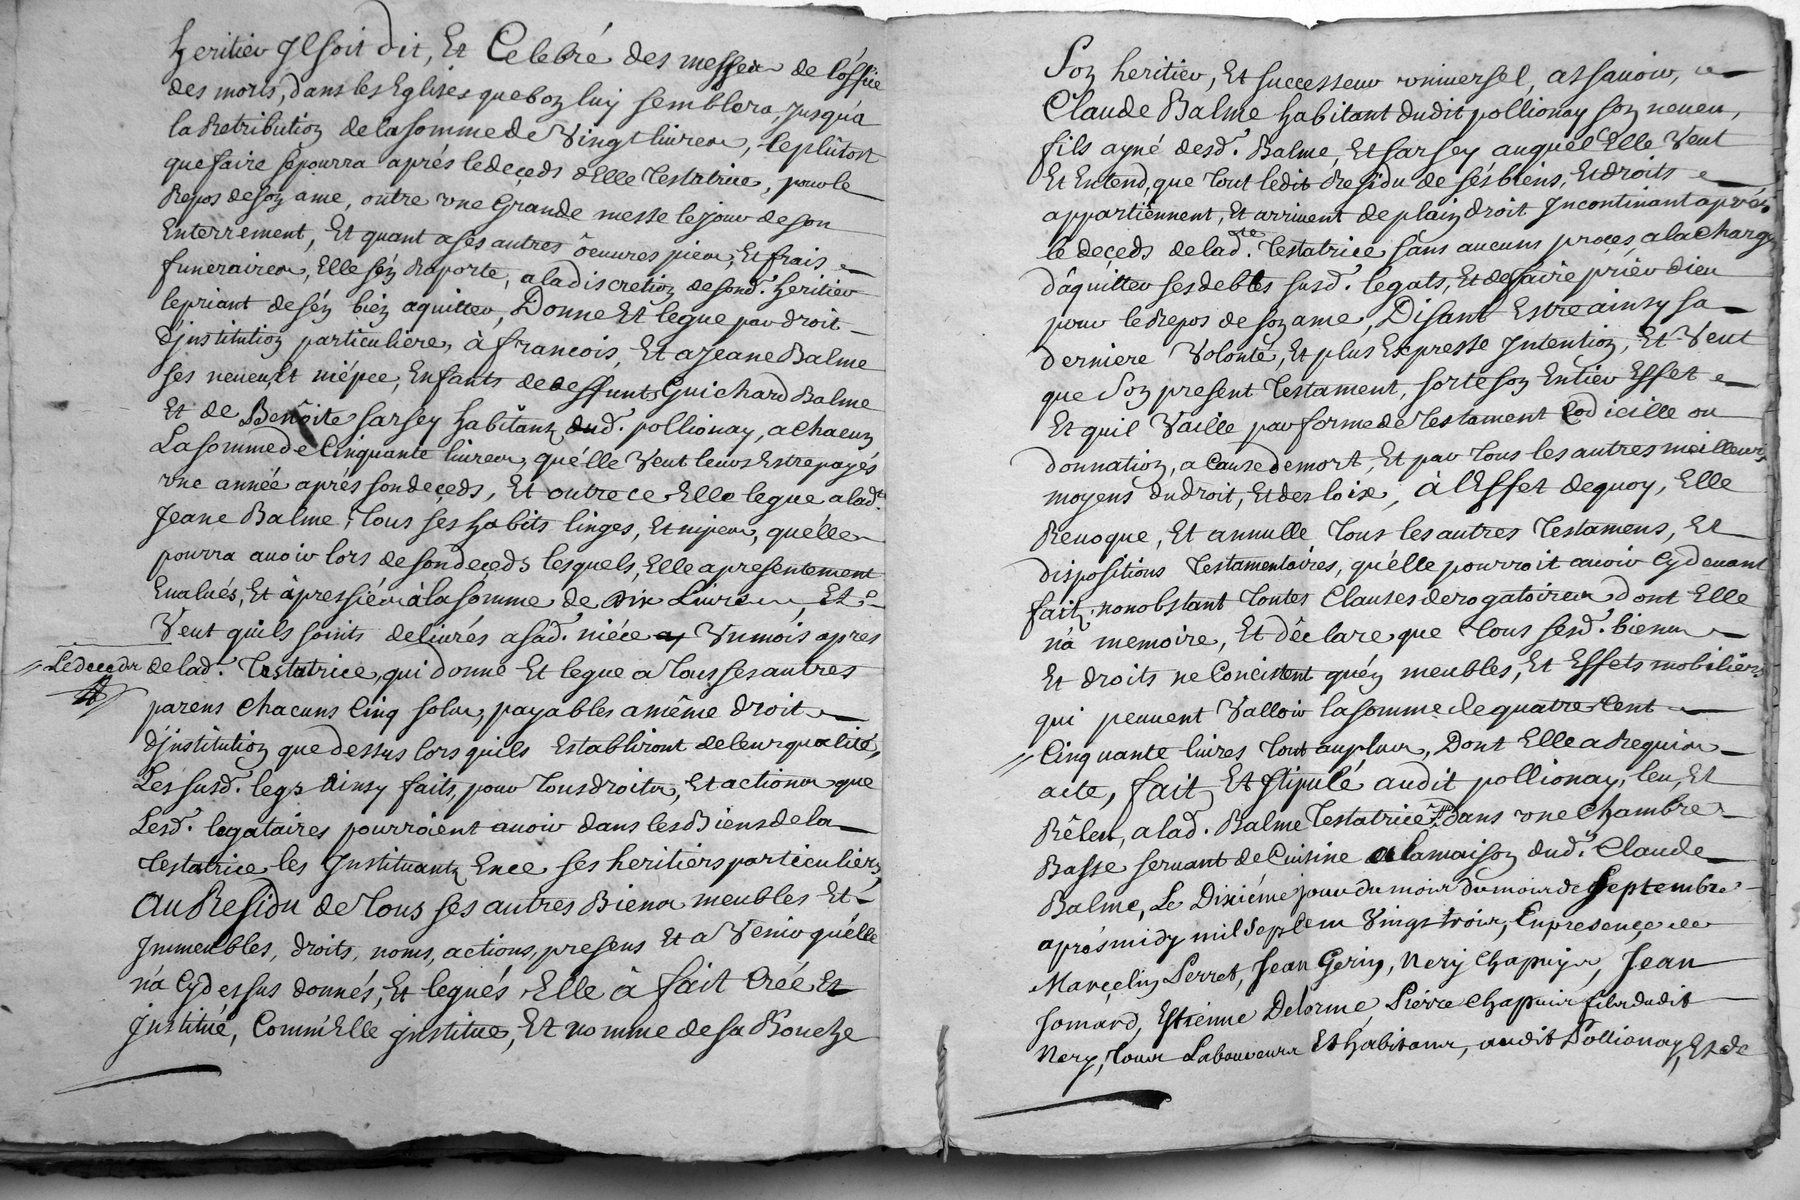 heritier Jl soit dit, Et Celebré des messes de l'office
des morts, dans les Eglises que bon luy semblera, jusqu'a
la Retribution de la somme de Vingt livres, le plûtost
que faire se pourra aprés le deçeds d'Elle Testatrice, pour le
Repos de son ame, outre une Grande messe le jour de son
Enterrement, Et quant a ses autres oeuvres pies, Et frais
funeraires, Elle s'én Raporte, a la discretion de sond.t heritier
le priant de s'én bién aquitter, Donne Et legue par droit
d'jnstitution particuliere, à francois, Et a Jeane Balme
ses neveu Et niépce, Enfants de deffunts Guichard Balme
Et de Benoite sarsey habitant dud.t pollionay, a chacun
La somme de Cinquante livres, qu'élle Veut leurs Estre payés
une année aprés son deçeds, Et outre ce Elle legue a lad.te
Jeane Balme, Tous ses habits linges, Et nipes, qu'élle
pourra avoir lors de son deçeds lesquels, Elle a presentement
Evalués, Et apressiés à la somme de Dix Livres, Et
Veut quils soints delivrés a sad.te niéce Un mois apres
Le deceds de lad.te Testatrice, qui donne Et legue a Tous ses autres
parens Chacuns Cinq solz, payables a même droit
d'jnstitution que dessus lors quils Establiront de leur qualité,
Les susd.t legs Ainsy faits, pour Tous droits, Et actions que
Lesd.t legataires pourroient avoir dans les Biens de la
Testatrice les Jnstituantz En ce ses heritiers particuliers,
Au Residu de Tous ses autres Biens meubles Et
Jmmeubles, droits, noms, actions, presens Et a Venir qu'élle
n'a Cy dessus donnés, Et legués Elle à fait Créé Et
jnstitué, Comm'Elle jnstitue, Et nomme de sa Bouche
Son heritier, Et successeur universel, assavoir,
Claude Balme habitant dudit pollionay son neveu,
fils ayné desd.t Balme, Et sarsey auquel Elle Veut
Et Entend, que Tout ledit Residu de ses biens, Et droits
appartiennent, Et arrivent de plain droit Jncontinant aprés
le deçeds de lad.te Testatrice sans aucuns procés a la charge
d'aquitter ses debtes susd.t legats, Et de faire priér dieu
pour le Repos de son ame, Disant Estre ainsy sa
derniere Volonté, Et plus Expresse Jntention, Et Veut
que Son present Testament, sorte son Entier Effet
Et quil Vaille par forme de Testament Codicille ou
donnation, a Cause de mort, Et par Tous les autres meilleurs
moyens du droit, Et des loix, à l'Effet dequoy, Elle
Revoque, Et annulle Tous les autres Testamens, Et
dispositions Testamentaires, qu'élle pourroit avoir Cy devant
fait, nonobstant Toutes Clauses derogatoires dont Elle
n'à memoire, Et dêclare que Tous sesd.t biens
Et droits ne Concistent qu'én meubles, Et Effets mobiliérs
qui peuvent Valloir la somme de quatre Cent
Cinquante livres Tout au plus, Dont Elle a Requis
acte, fait, Et stipulé audit pollionay, leu, Et
Rêleu, a lad.te Balme Testatrice dans une Chambre
Basse servant de Cuisine a la maison dud.t Claude
Balme, Le Dixiéme jour du mois du mois de Septembre
aprés midy mil Sept Cens Vingt trois, En presençe de
Marçelin Perret, Jean Gerin, Nery Chapuys, Jean
Somard, Estienne Delorme, Pierre Chapuis fils dudit
Nery, Tous Laboureurs Et habitans, audit Pollionay, Et de